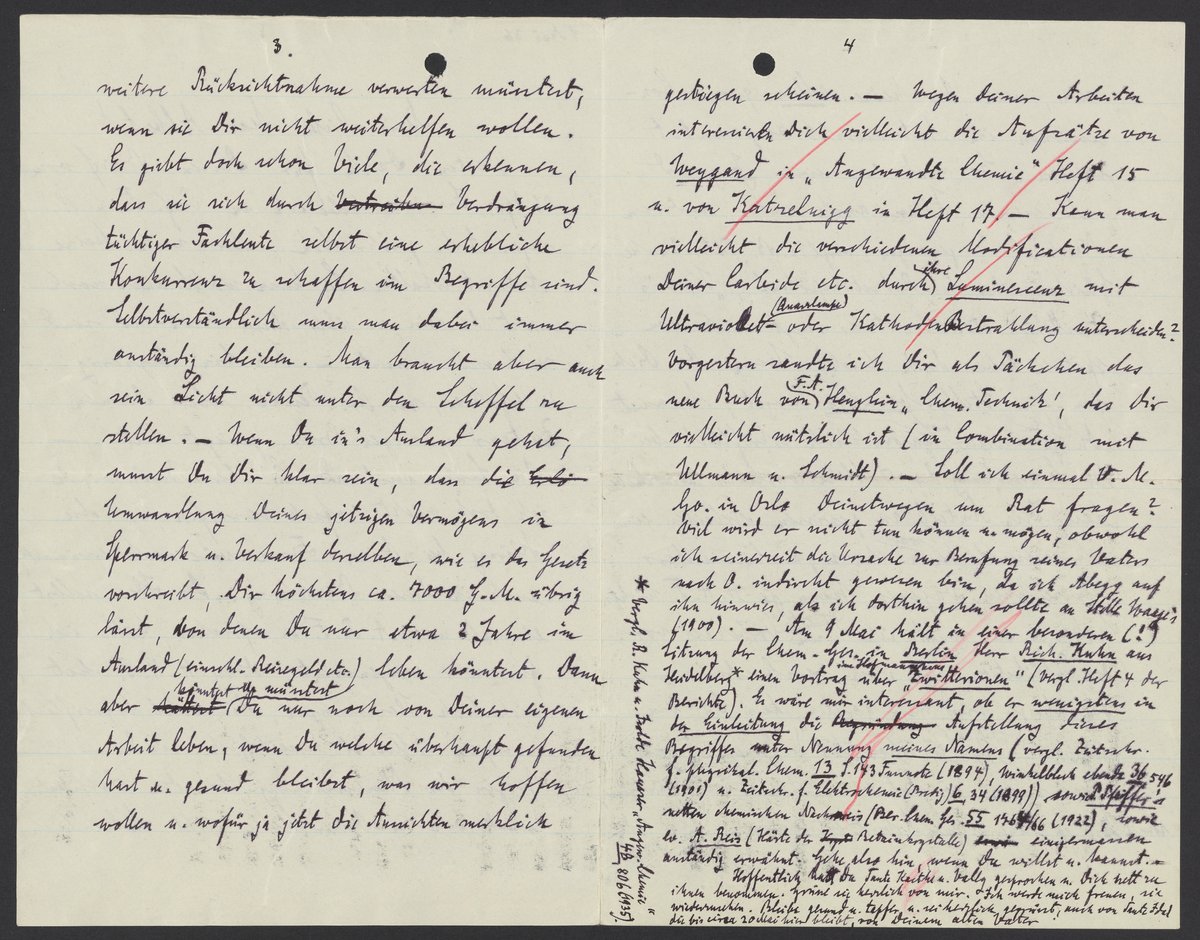 3.
weitere Rücksichtnahme verwerten müsstest,
wenn sie Dir nicht weiterhelfen wollen.
Es giebt doch schon Viele, die erkennen,
dass sie sich durch Vertreiben Verdrängung
tüchtiger Fachleute selbst eine erhebliche
Konkurrenz zu schaffen im Begriffe sind.
Selbstverständlich muss man dabei immer
anständig bleiben. Man braucht aber auch
sein Licht nicht unter den Scheffel zu
stellen. — Wenn Du in's Ausland gehst,
musst Du Dir klar sein, dass die
Umwandlung Deines jetzigen Vermögens in
Sperrmark u. Verkauf derselben, wie es das Gesetz
vorschreibt, Dir höchstens ca. 7000 G.-M. übrig
lässt, von denen Du nur etwa 2 Jahre im
Ausland (einschl. Reisegeld etc.) leben könntest. Dann
könntest u. müsstest
aber hättest Du nur noch von Deiner eigenen
Arbeit leben, wenn Du welche überhaupt gefunden
hast u. gesund bleibst, was wir hoffen
wollen u. wofür ja jetzt die Aussichten merklich
4
gestiegen scheinen. — Wegen Deiner Arbeiten
interessieren Dich vielleicht die Aufsätze von
Weygand in „Angewandte Chemie" Heft 15
u. von Katzelnigg in Heft 17. — Kann man
vielleicht die verschiedenen Modificationen
Deiner Carbide etc. durch ihre Luminescenz mit
(Analslampe)
Ultraviolett- oder Kathoden Bestrahlung unterscheiden?
Vorgestern sandte ich Dir als Päckchen das
neue Buch von F.A. Henglein „Chem. Technik", das Dir
vielleicht nützlich ist (in Combination mit
Ullmann u. Schmidt). — Soll ich einmal V. M.
Go. in Oslo Deinetwegen um Rat fragen?
Viel wird er nicht tun können u. mögen, obwohl
ich seinerzeit die Ursache zur Berufung seines Vaters
nach O. indirekt gewesen bin, da ich Abegg auf
ihn hinwies, als ich dorthin gehen sollte an Stelle Waage's
(1900). — Am 9 Mai hält in einer besonderen (!?)
Sitzung der Chem. Ges. in Berlin Herr Rich. Kuhn aus
im Hofmannhaus
Heidelberg* einen Vortrag über „Zwitterionen" (vergl. Heft 4 der
Berichte). Es wäre mir interessant, ob er wenigstens in
der Einleitung die Begründung Aufstellung dieses
Begriffes unter Nennung meines Namens (vergl. Zeitschr.
f. physikal. Chem. 13 S. 143 Fussnote (1894), Winkelblech ebenda 36, 546
(1901) u. Zeitschr. f. Elektrochemie (Bredig) 6 34 (1899)) sowie P. Pfeiffer's
netten chemischen Nachweis (Ber. Chem. Ges. 55 1764/66 (1922), sowie
ev. A. Reis (Härte der Betainkrystalle) einigermassen
anständig erwähnt. Gehe also hin, wenn Du willst u. kannst. —
Hoffentlich hast Du Tante Kaethe u. Vally gesprochen u. Dich nett zu
ihnen benommen. Grüsse sie herzlich von mir. Ich werde mich freuen, sie
wiederzusehen. Bleibe gesund u. tapfer u. sei herzlich gegrüsst, auch von Tante Idel
die bis circa 20 Mai hier bleibt, von Deinem alten Vater
* Vergl. R. Kuhn u. Isolde Hausser „Angew. Chemie"
48 806 (1935)